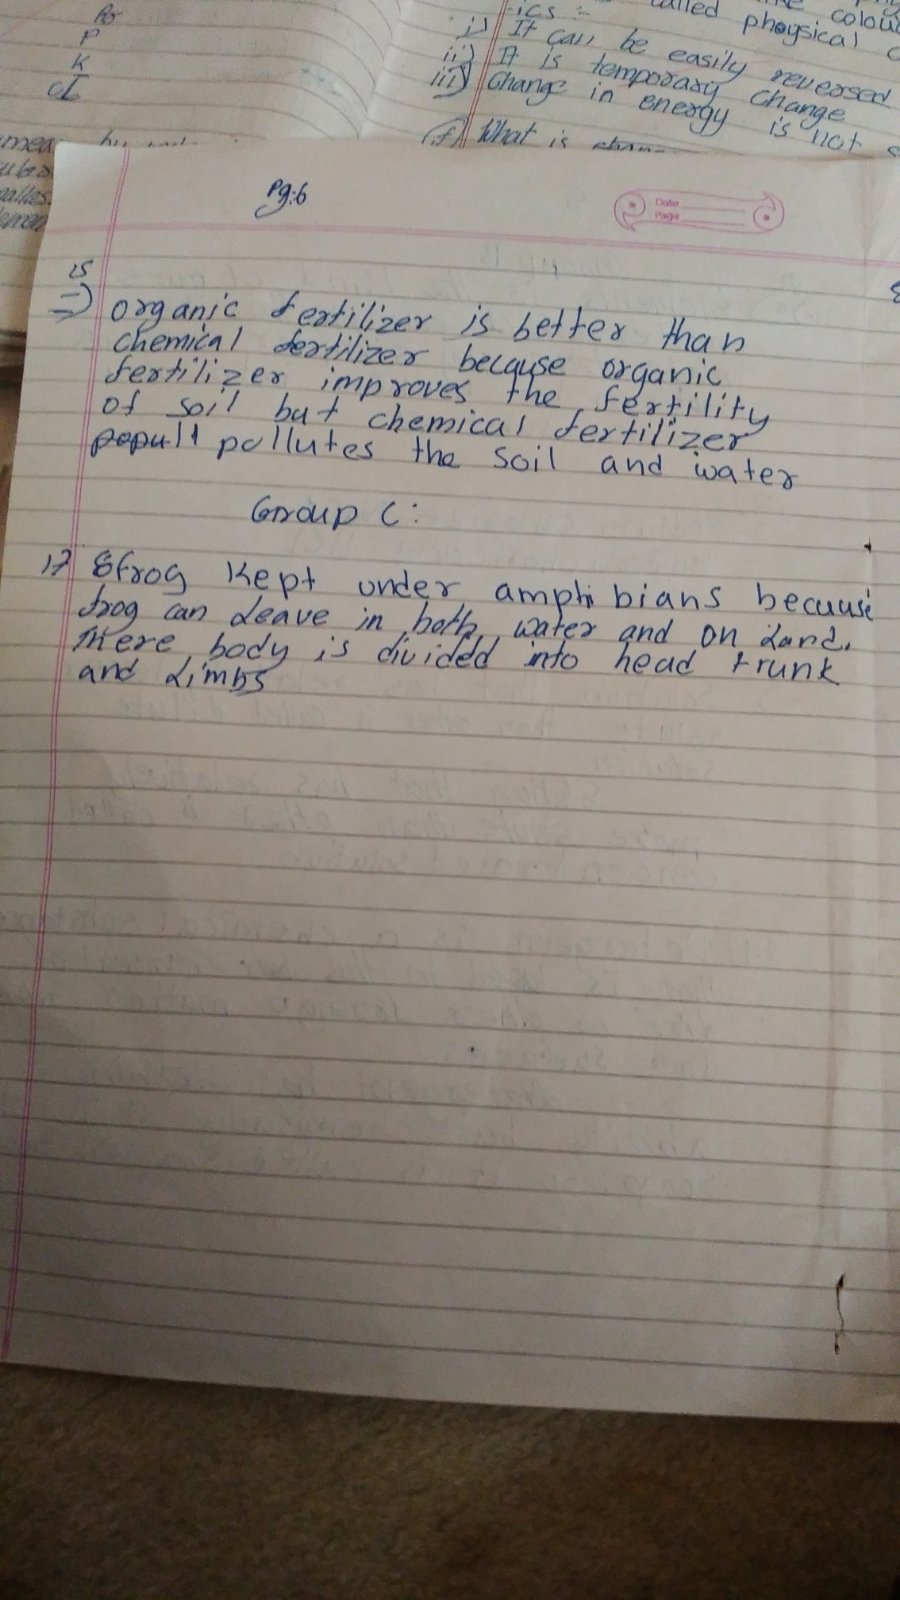 Ar
P
K
ca
ics =
called physical c
i) It can be easily reversed
ii) It is temporary change
iii) Change in energy is not s
(f) What is
Pg:6
Date
Page
15
=) organic fertilizer is better than
chemical fertilizer because organic
fertilizer improves the fertility
of soil but chemical fertilizer
pollutes the soil and water
Group C:
17 frog Kept under amphibians because
frog can Leave in both water and on Land.
There body is divided into head trunk
and Limbs